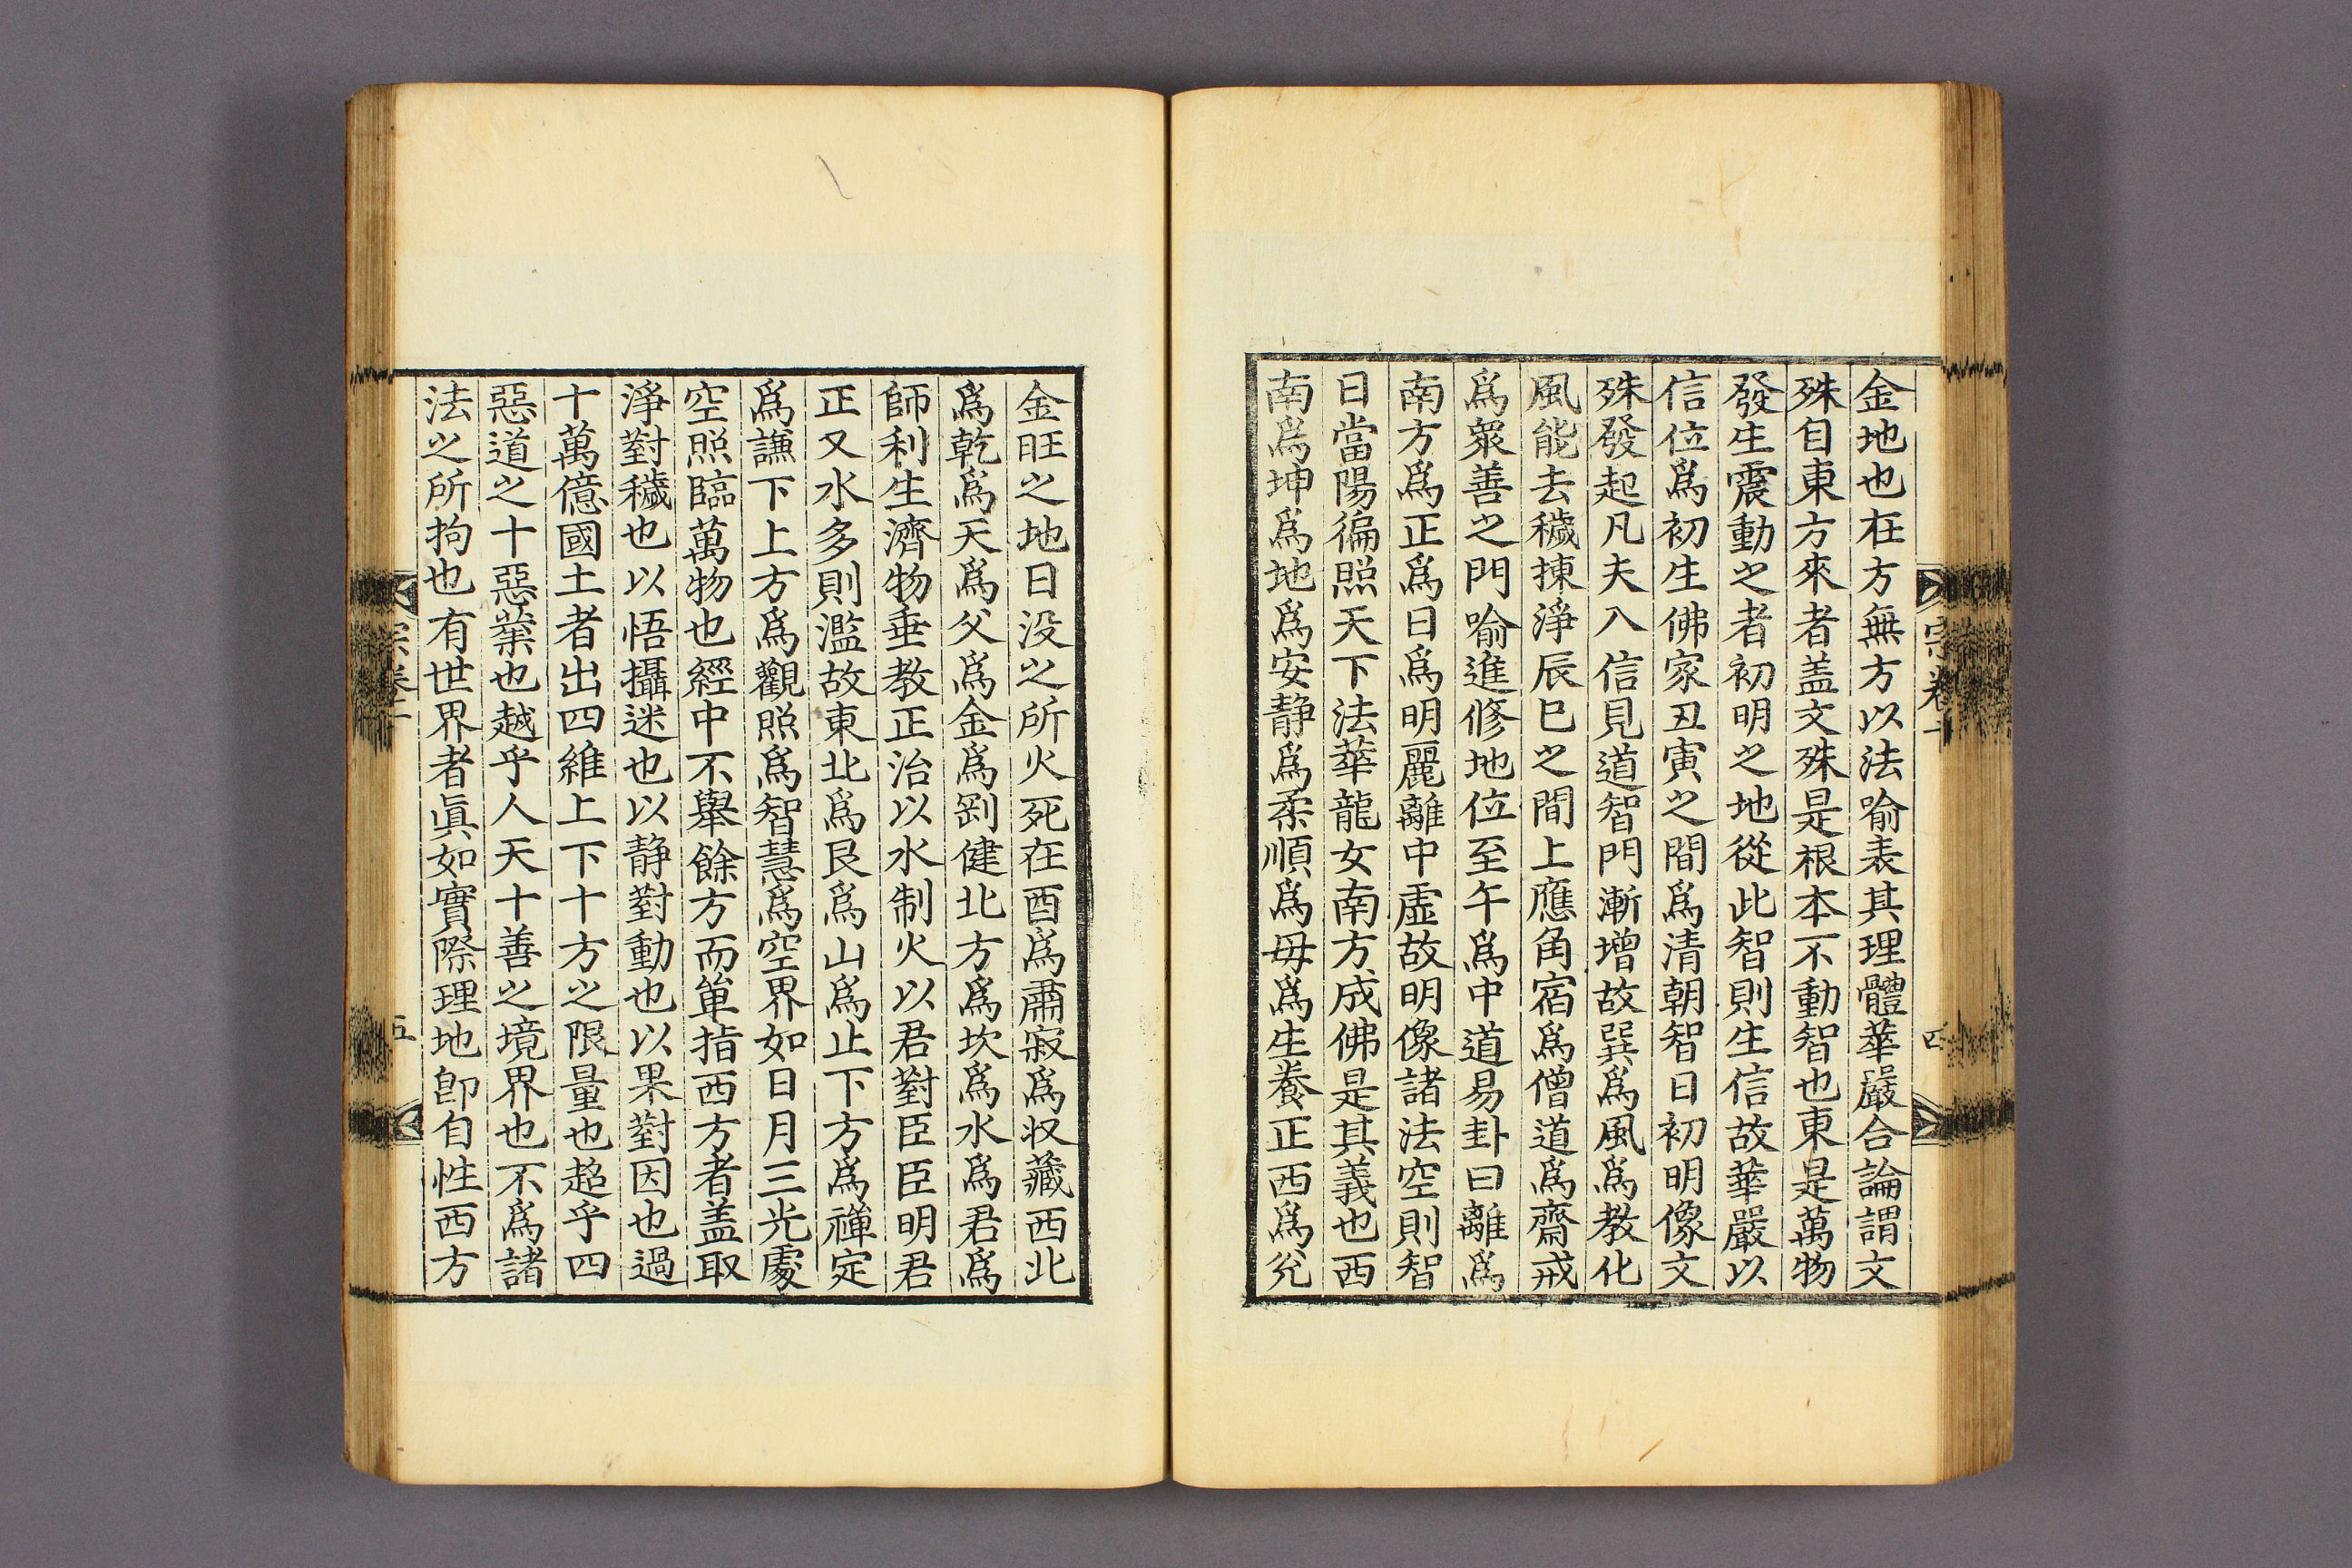 金地也在方無方以法喻表其理體華嚴合論謂文
殊自東方來者盖文殊是根本不動智也東是萬物
發生震動之者初明之地從此智則生信故華嚴以
信位爲初生佛家丑寅之間爲清朝智日初明像文
殊發起凡夫入信見道智門漸增故巽爲風爲教化
風能去穢揀淨辰巳之間上應角宿爲僧道爲齋戒
爲衆善之門喻進修地位至午爲中道易卦曰離爲
南方爲正爲日爲明麗離中虛故明像諸法空則智
日當陽徧照天下法華龍女南方成佛是其義也西
南爲坤爲地爲安静爲柔順爲毋爲生養正西爲兊
宗卷十
四
金旺之地日没之所火死在酉爲肅寂爲収藏西北
爲乾爲天爲父爲金爲剛健北方爲坎爲水爲君爲
師利生濟物垂教正治以水制火以君對臣臣明君
正又水多則濫故東北爲艮爲山爲止下方爲禪定
爲謙下上方爲觀照爲智慧爲空界如日月三光處
空照臨萬物也經中不舉餘方而單指西方者盖取
淨對穢也以悟攝迷也以静對動也以果對因也過
十萬億國土者出四維上下十方之限量也超乎四
惡道之十惡業也越乎人天十善之境界也不爲諸
法之所拘也有世界者眞如實際理地卽自性西方
宗卷二
五